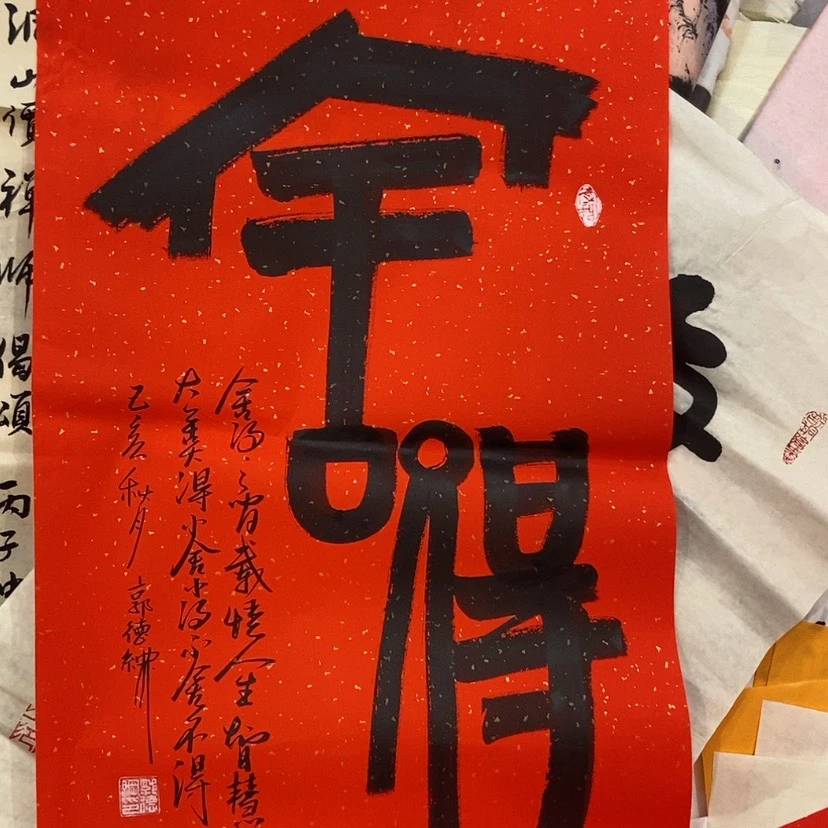 舍得
舍得之间载悟人生智慧
大舍大得小舍小得不舍不得
己亥秋月
郭德纲
洞山價禪師偈頌
丙子